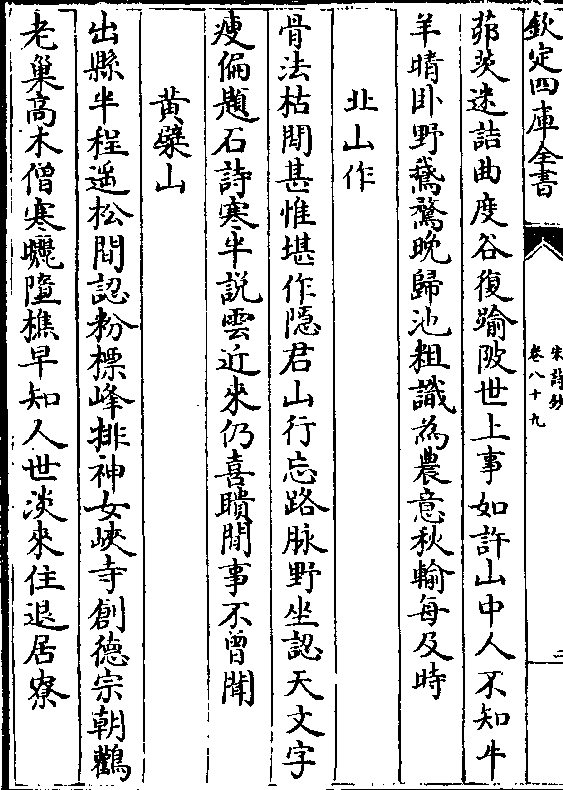 欽定四庫全書
宋詩鈔
卷八十九
二
茆茨迷詰曲度谷復踰陂世上事如許山中人不知牛
羊晴卧野鵞鶩晚歸池粗識為農意秋輸每及時
北山作
骨法枯閒甚惟堪作隱君山行忘路脉野坐認天文字
瘦偏題石詩寒半説雲近來仍喜聵閒事不曾聞
黄檗山
出縣半程遥松間認粉標峰排神女峽寺創德宗朝鸛
老巢高木僧寒曬墮樵早知人世淡來住退居寮